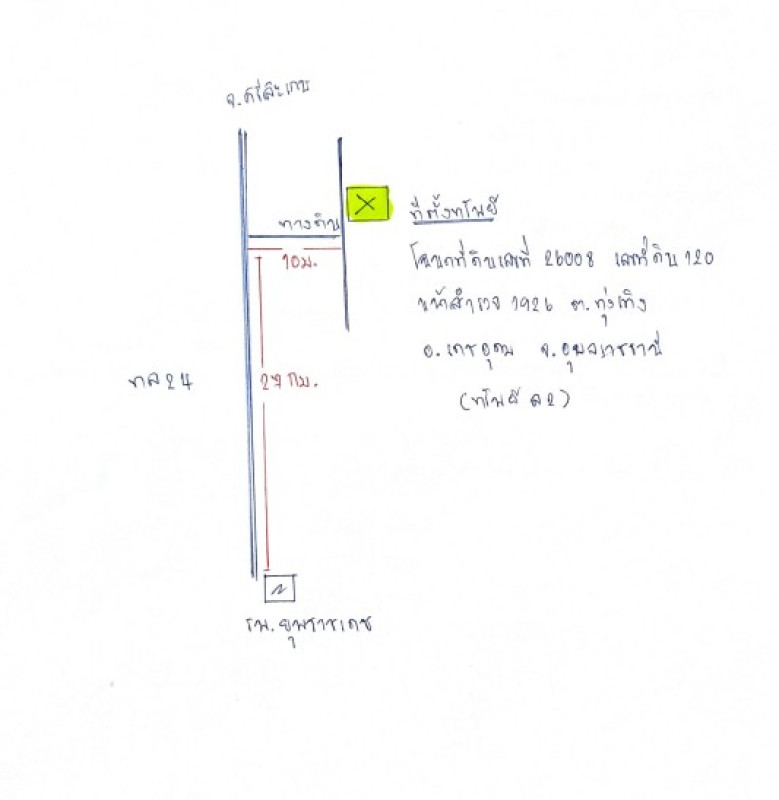 จ.ศรีสะเกษ
ทางดิน
ที่ตั้งทรัพย์
10ม.
โฉนดที่ดินเลขที่ 26008 เลขที่ดิน 120
หน้าสำรวจ 1926 ต.ทุ่งเทิง
อ.เดชอุดม จ.อุบลราชธานี
ทล 24
27 กม.
(ทรัพย์ ล2)
รพ.ยุพราชเดช